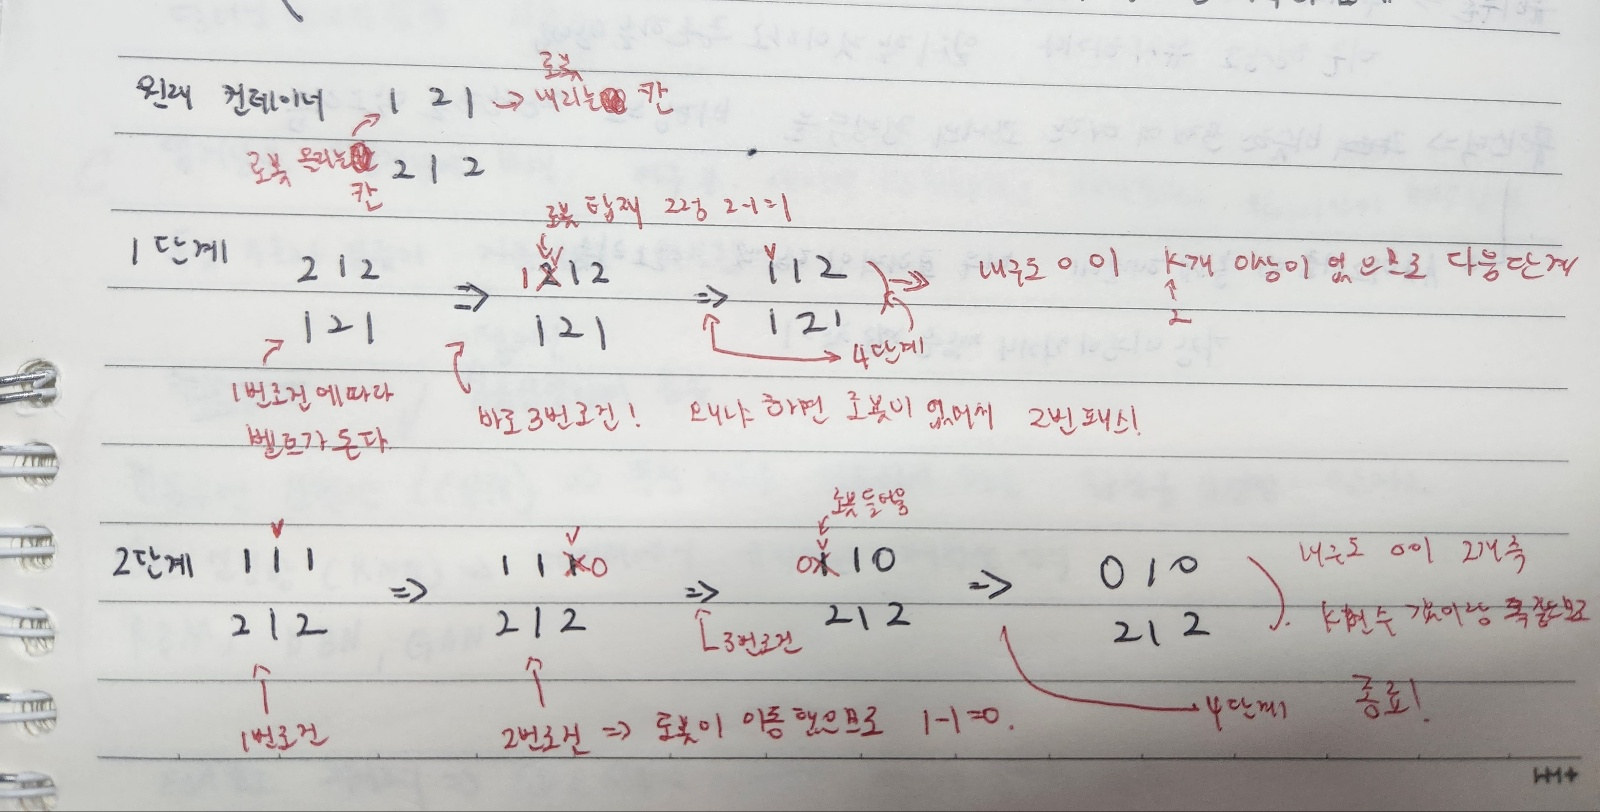 원래 컨테이너 1 2 1 → 로봇 내리는 칸
로봇 올리는 칸 2 1 2
로봇 탑재 과정 2-1=1
1단계 2 1 2 ⇒ 1 2 1 2 ⇒ 1 1 2 → 내구도 0이 K개 이상이 없으므로 다음단계
1 2 1 1 2 1 1 2 1 2
4단계
1번조건에따라 바로 3번조건! 왜냐 하면 로봇이 없어서 2번 패스!
벨트가 돈다
로봇 들어옴
2단계 1 1 1 ⇒ 1 1 1 0 ⇒ 0 1 1 0 ⇒ 0 1 0 내구도 0이 2개 즉
2 1 2 2 1 2 3번조건 2 1 2 2 1 2 K
1번조건 2번조건 ⇒ 로봇이 이동 했으므로 1-1=0. 4단계 종료!